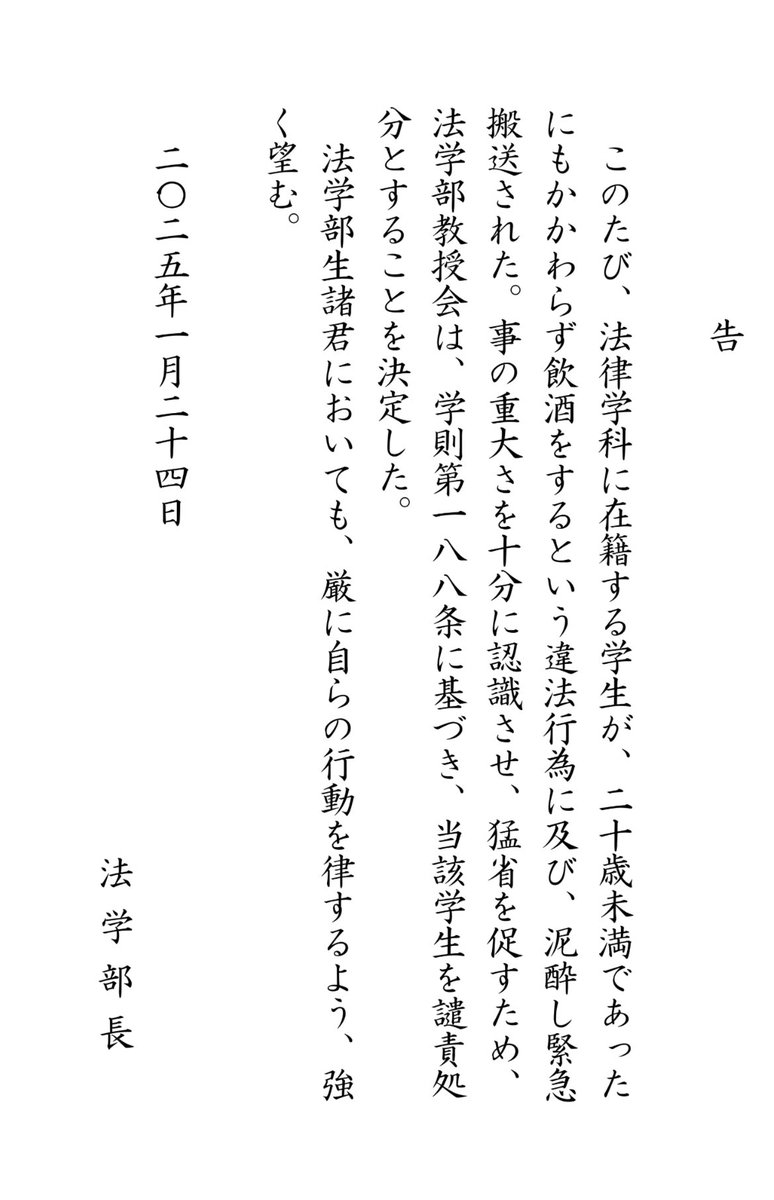 告
このたび、法律学科に在籍する学生が、二十歳未満であった
にもかかわらず飲酒をするという違法行為に及び、泥酔し緊急
搬送された。事の重大さを十分に認識させ、猛省を促すため、
法学部教授会は、学則第一八八条に基づき、当該学生を譴責処
分とすることを決定した。
法学部生諸君においても、厳に自らの行動を律するよう、強
く望む。
二〇二五年一月二十四日
法学部長